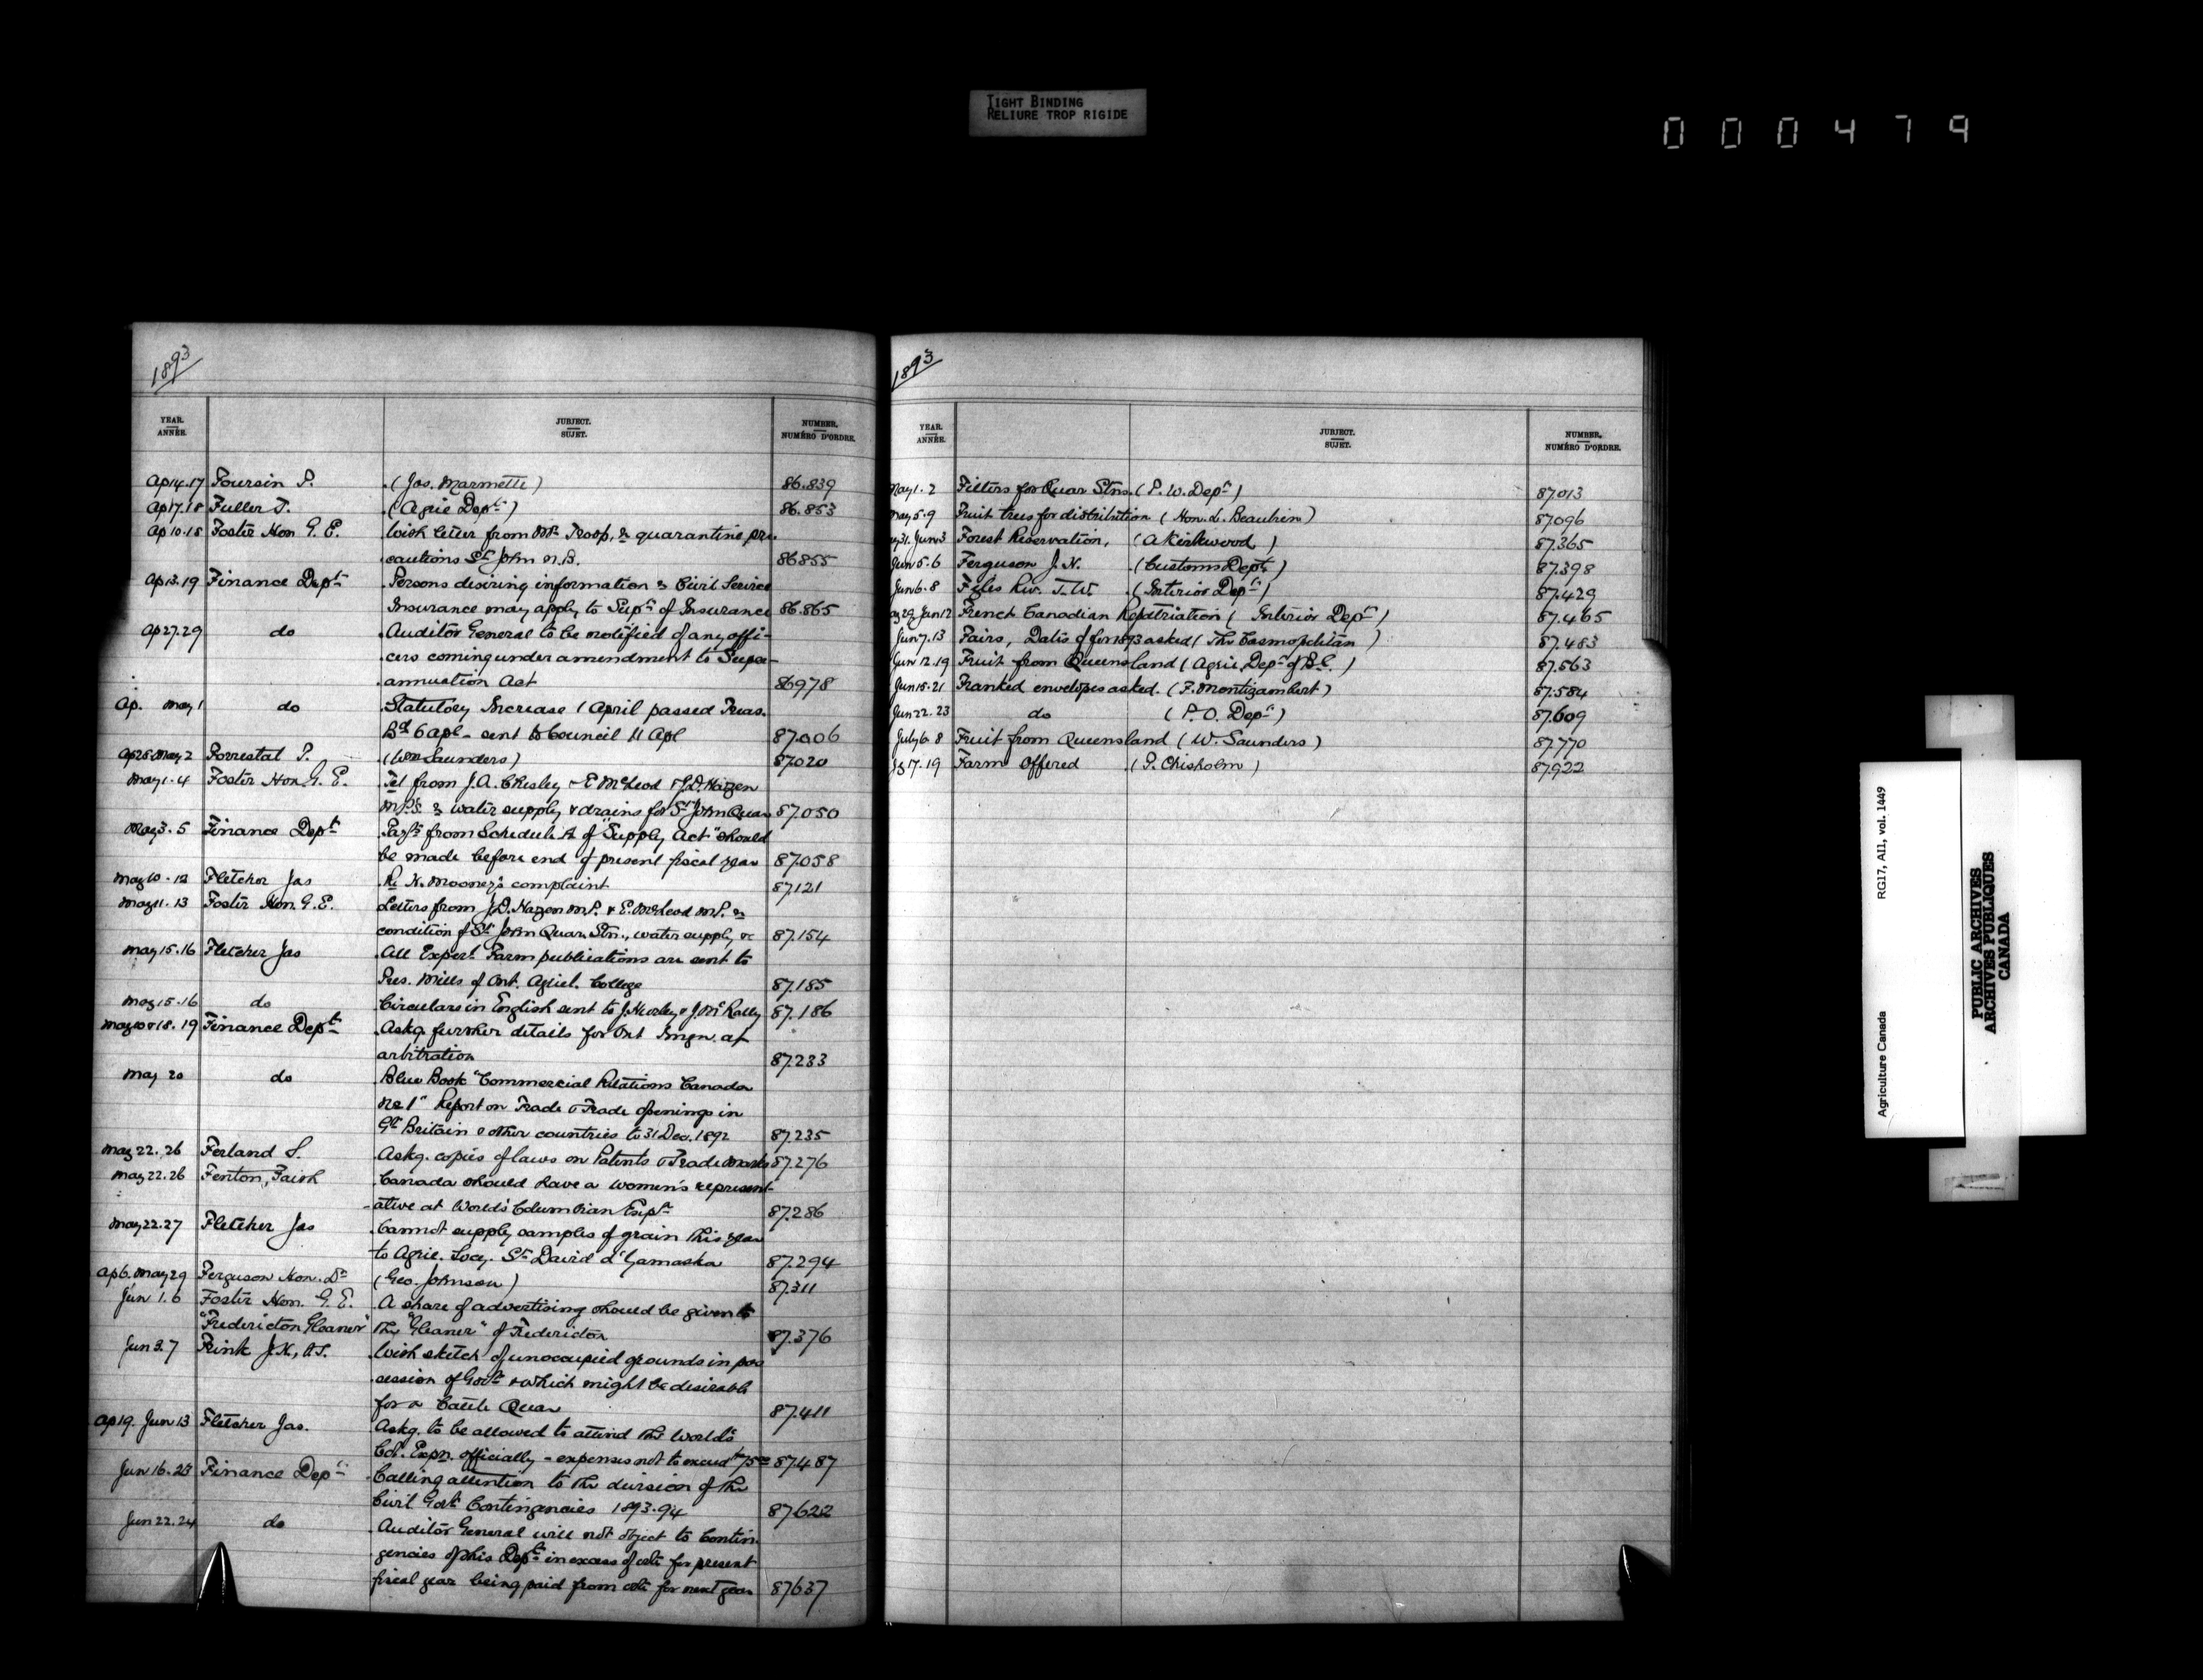 TIGHT BINDING
RELIURE TROP RIGIDE
000479
1893
YEAR. ANNÉE. JUBJECT. SUJET. NUMBER, NUMÉRO D'ORDRE.
Ap 14.17 Poursin P. (Jos. Marmette) 86.839
Ap 17.18 Fuller T. (Agric Dept) 86.853
Ap 10.18 Foster Hon G. E. With letter from Mr Troop, re quarantine pre-
cautions St John N.B. 86855
Ap 13.19 Finance Dept Persons desiring information re Civil Service
Insurance may apply to Supt of Insurance 86.865
Ap 27.29 do Auditor General to be notified of any offi-
cers coming under amendment to Super-
annuation Act 86978
Ap. May 1 do Statutory Increase 1 April passed Treas.
Bd 6 Apl - sent to Council 11 Apl 87.006
Ap 28 May 2 Forrestal P. (Wm Saunders) 87020
May 1.4 Foster Hon. G. E. Tel from J.A. Chesley & E McLeod & J.D. Hazen
M.P.s re water supply & drains for St John Quar 87.050
May 3.5 Finance Dept Payts from Schedule A of "Supply Act" should
be made before end of present fiscal year 87.058
May 10.12 Fletcher Jas Re H. Mooney's complaint 87.121
May 11.13 Foster Hon. G.E. Letters from J.D. Hazen M.P. & E. McLeod M.P. re
condition of St John Quar. Stn., water supply &c 87.154
May 15.16 Fletcher Jas All Expert. Farm publications are sent to
Pres. Mills of Ont. Agricl. College 87.185
May 15.16 do Circulars in English sent to J. Hurley & J. McRally 87.186
May 10 & 18.19 Finance Dept Askg. further details for Ont Imgn. a/c
arbitration 87.233
May 20 do Blue Book "Commercial Relations Canada
No 1" Report on Trade & Trade openings in
Gt Britain & other countries to 31 Dec. 1892 87.235
May 22.26 Ferland S. Askg. copies of laws on Patents & Trade Marks 87.276
May 22.26 Fenton, Faith Canada should have a women's represent-
ative at World's Columbian Expn 87.286
May 22.27 Fletcher Jas Cannot supply samples of grain this year
to Agric. Socy. St David d'Yamaska 87.294
Ap 6. May 29 Ferguson Hon. D. (Geo. Johnson) 87.311
Jun 1.6 Foster Hon. G. E. A share of advertising should be given to
"Fredericton Gleaner" the "Gleaner" of Fredericton 87.376
Jun 3.7 Frink J.H., V.S. With sketch of unoccupied grounds in pos
session of Govt & which might be desirable
for a Cattle Quar 87.411
Ap 19. Jun 13 Fletcher Jas. Askg. to be allowed to attend the World's
Col. Expn. officially - expenses not to exceed $75.00 87.487
Jun 16.23 Finance Dept Calling attention to the division of the
Civil Govt Contingencies 1893.94 87622
Jun 22.24 do Auditor General will not object to Contin-
gencies of this Dept in excess of vote for present
fiscal year being paid from vote for next year 87637
1893
YEAR. ANNÉE. JUBJECT. SUJET. NUMBER, NUMÉRO D'ORDRE.
May 1.2 Filters for Quar Stns. (P. W. Dept) 87.013
May 5.9 Fruit trees for distribution (Hon. L. Beaubien) 87.096
31. Jun 3 Forest Reservation, (A Kirkwood) 87.365
Jun 5.6 Ferguson J. H. (Customs Dept) 87.398
Jun 6.8 Fyles Rev. T. W. (Interior Dept) 87.429
29 Jun 12 French Canadian Repatriation (Interior Dept) 87.465
Jun 7.13 Fairs, Dates of for 1893 asked (The Cosmopolitan) 87.483
Jun 12.19 Fruit from Queensland (Agric. Dept of B.C.) 87.563
Jun 15.21 Franked envelopes asked. (F. Montizambert) 87.584
Jun 22.23 do (P. O. Dept) 87.609
July 6.8 Fruit from Queensland (W. Saunders) 87.770
17.19 Farm Offered (P. Chisholm) 87.922
Agriculture Canada RG17, AII, vol. 1449
PUBLIC ARCHIVES
ARCHIVES PUBLIQUES
CANADA